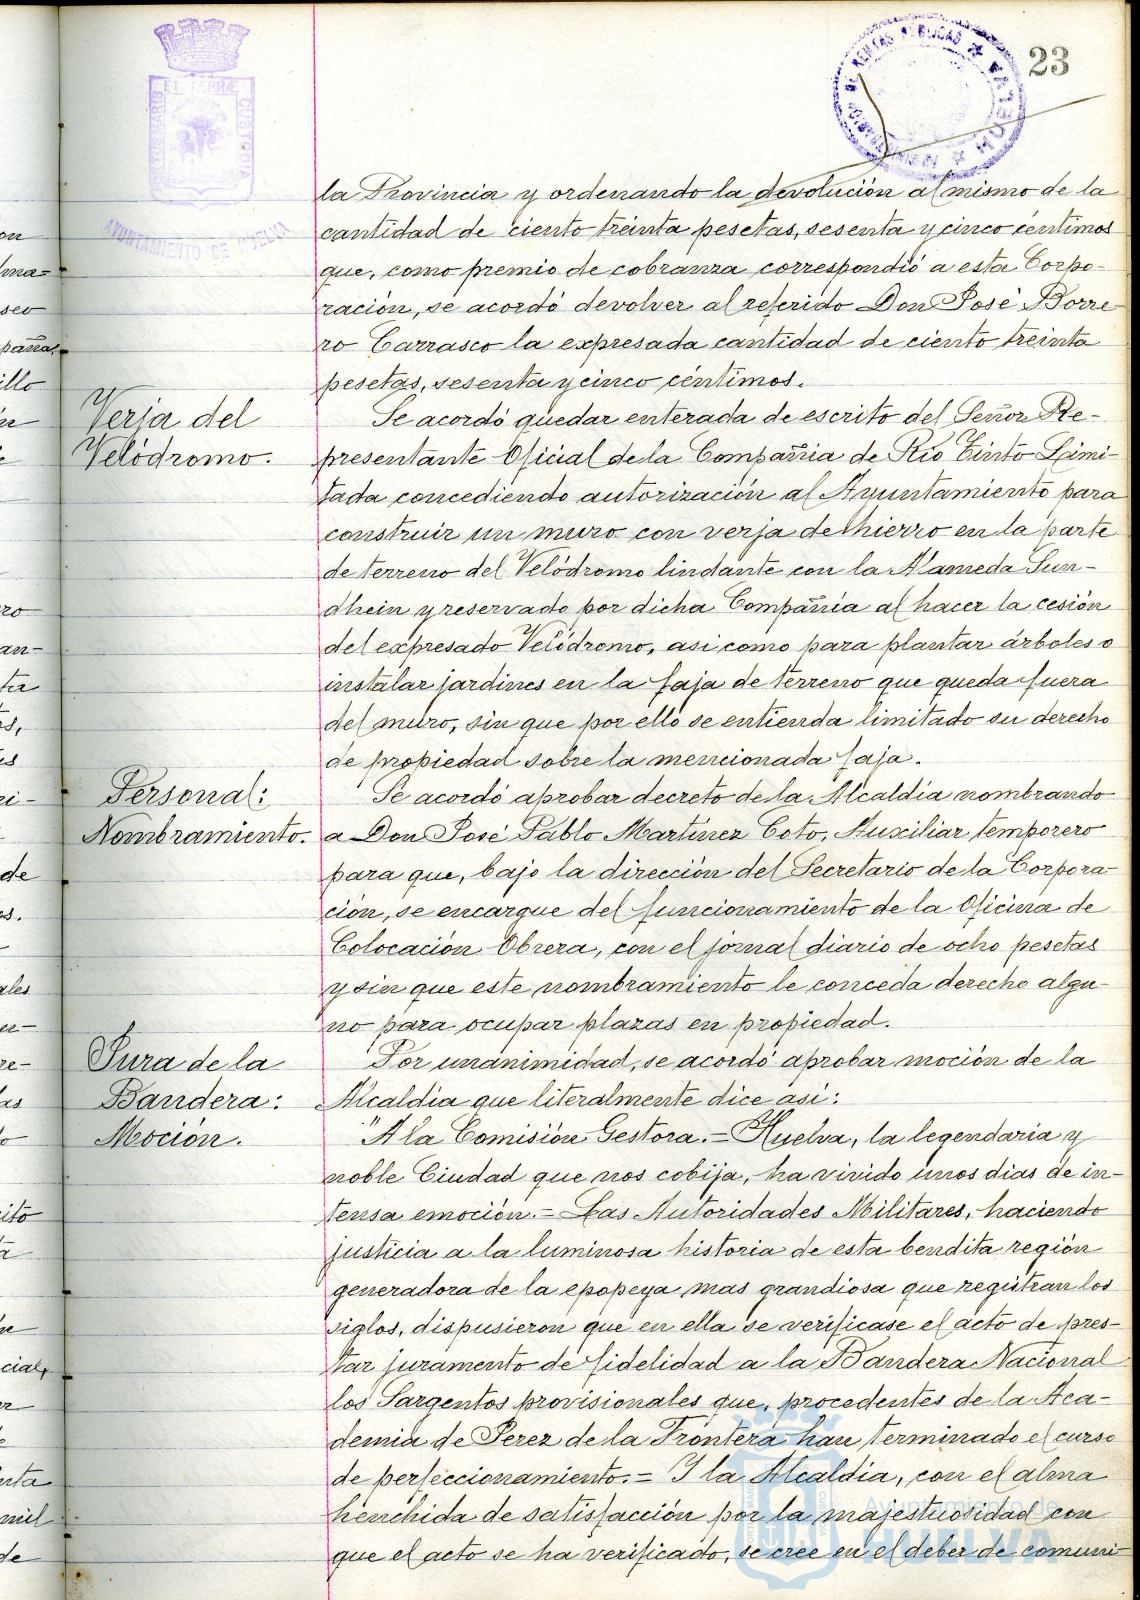 23
la Provincia y ordenando la devolución al mismo de la
cantidad de ciento treinta pesetas, sesenta y cinco céntimos
que, como premio de cobranza correspondió a esta Corpo-
ración, se acordó devolver al referido Don José Borre-
ro Carrasco la expresada cantidad de ciento treinta
pesetas, sesenta y cinco céntimos.
Verja del
Velódromo.
Se acordó quedar enterada de escrito del Señor Re-
presentante Oficial de la Compañia de Rio Tinto Limi-
tada concediendo autorización al Ayuntamiento para
construir un muro con verja de hierro en la parte
de terreno del Velódromo lindante con la Alameda Sun-
dhein y reservado por dicha Compañia al hacer la cesión
del expresado Velódromo, asi como para plantar árboles o
instalar jardines en la faja de terreno que queda fuera
del muro, sin que por ello se entienda limitado su derecho
de propiedad sobre la mencionada faja.
Personal:
Nombramiento.
Se acordó aprobar decreto de la Alcaldia nombrando
a Don José Pablo Martinez Coto, Auxiliar temporero
para que, bajo la dirección del Secretario de la Corpora-
ción, se encargue del funcionamiento de la Oficina de
Colocación Obrera, con el jornal diario de ocho pesetas
y sin que este nombramiento le conceda derecho algu-
no para ocupar plazas en propiedad.
Jura de la
Bandera:
Moción.
Por unanimidad, se acordó aprobar moción de la
Alcaldia que literalmente dice asi:
"A la Comisión Gestora.= Huelva, la legendaria y
noble Ciudad que nos cobija, ha vivido unos dias de in-
tensa emoción.= Las Autoridades Militares, haciendo
justicia a la luminosa historia de esta bendita región
generadora de la epopeya mas grandiosa que registran los
siglos, dispusieron que en ella se verificase el acto de pres-
tar juramento de fidelidad a la Bandera Nacional
los Sargentos provisionales que, procedentes de la Aca-
demia de Jerez de la Frontera han terminado el curso
de perfeccionamiento.= Y la Alcaldia, con el alma
henchida de satisfacción por la majestuosidad con
que el acto se ha verificado, se cree en el deber de comuni-
AYUNTAMIENTO DE HUELVA
Ayuntamiento de
HUELVA